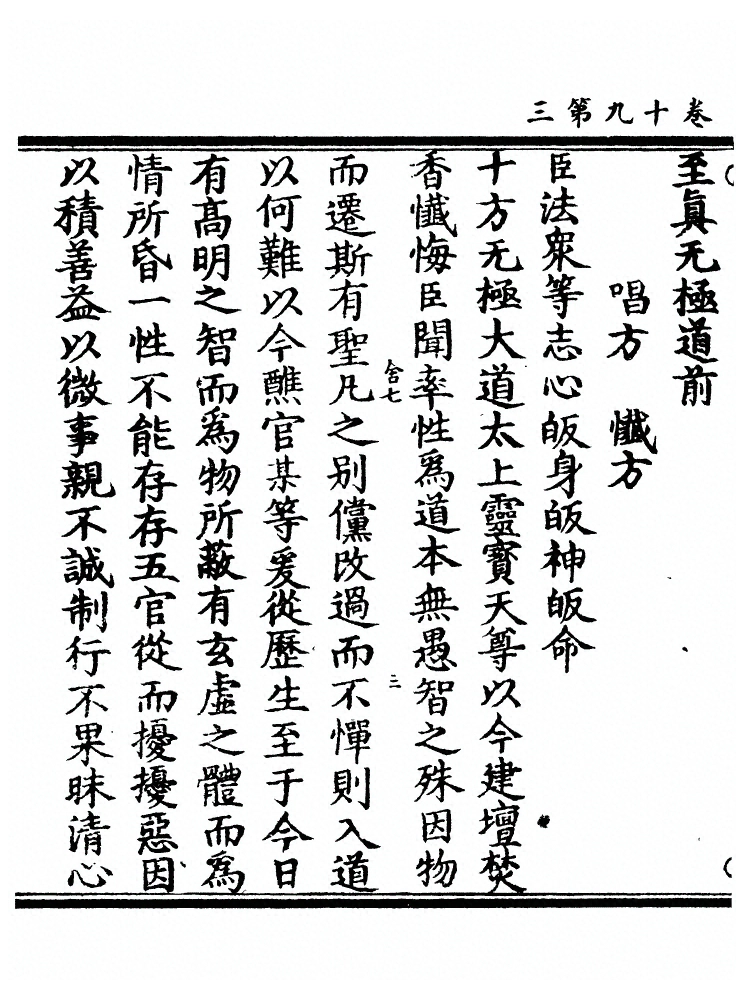 卷十九第三
至眞无極道前
唱方　懺方
臣法衆等志心皈身皈神皈命
十方无極大道太上靈寳天尊以今建壇焚
香懺悔臣聞率性爲道本無愚智之殊因物
舍七
三
而遷斯有聖凡之别儻改過而不憚則入道
以何難以今醮官某等爰從歷生至于今日
有高明之智而爲物所蔽有玄虛之體而爲
情所昏一性不能存存五官從而擾擾惡因
以積善益以微事親不誠制行不果昧清心